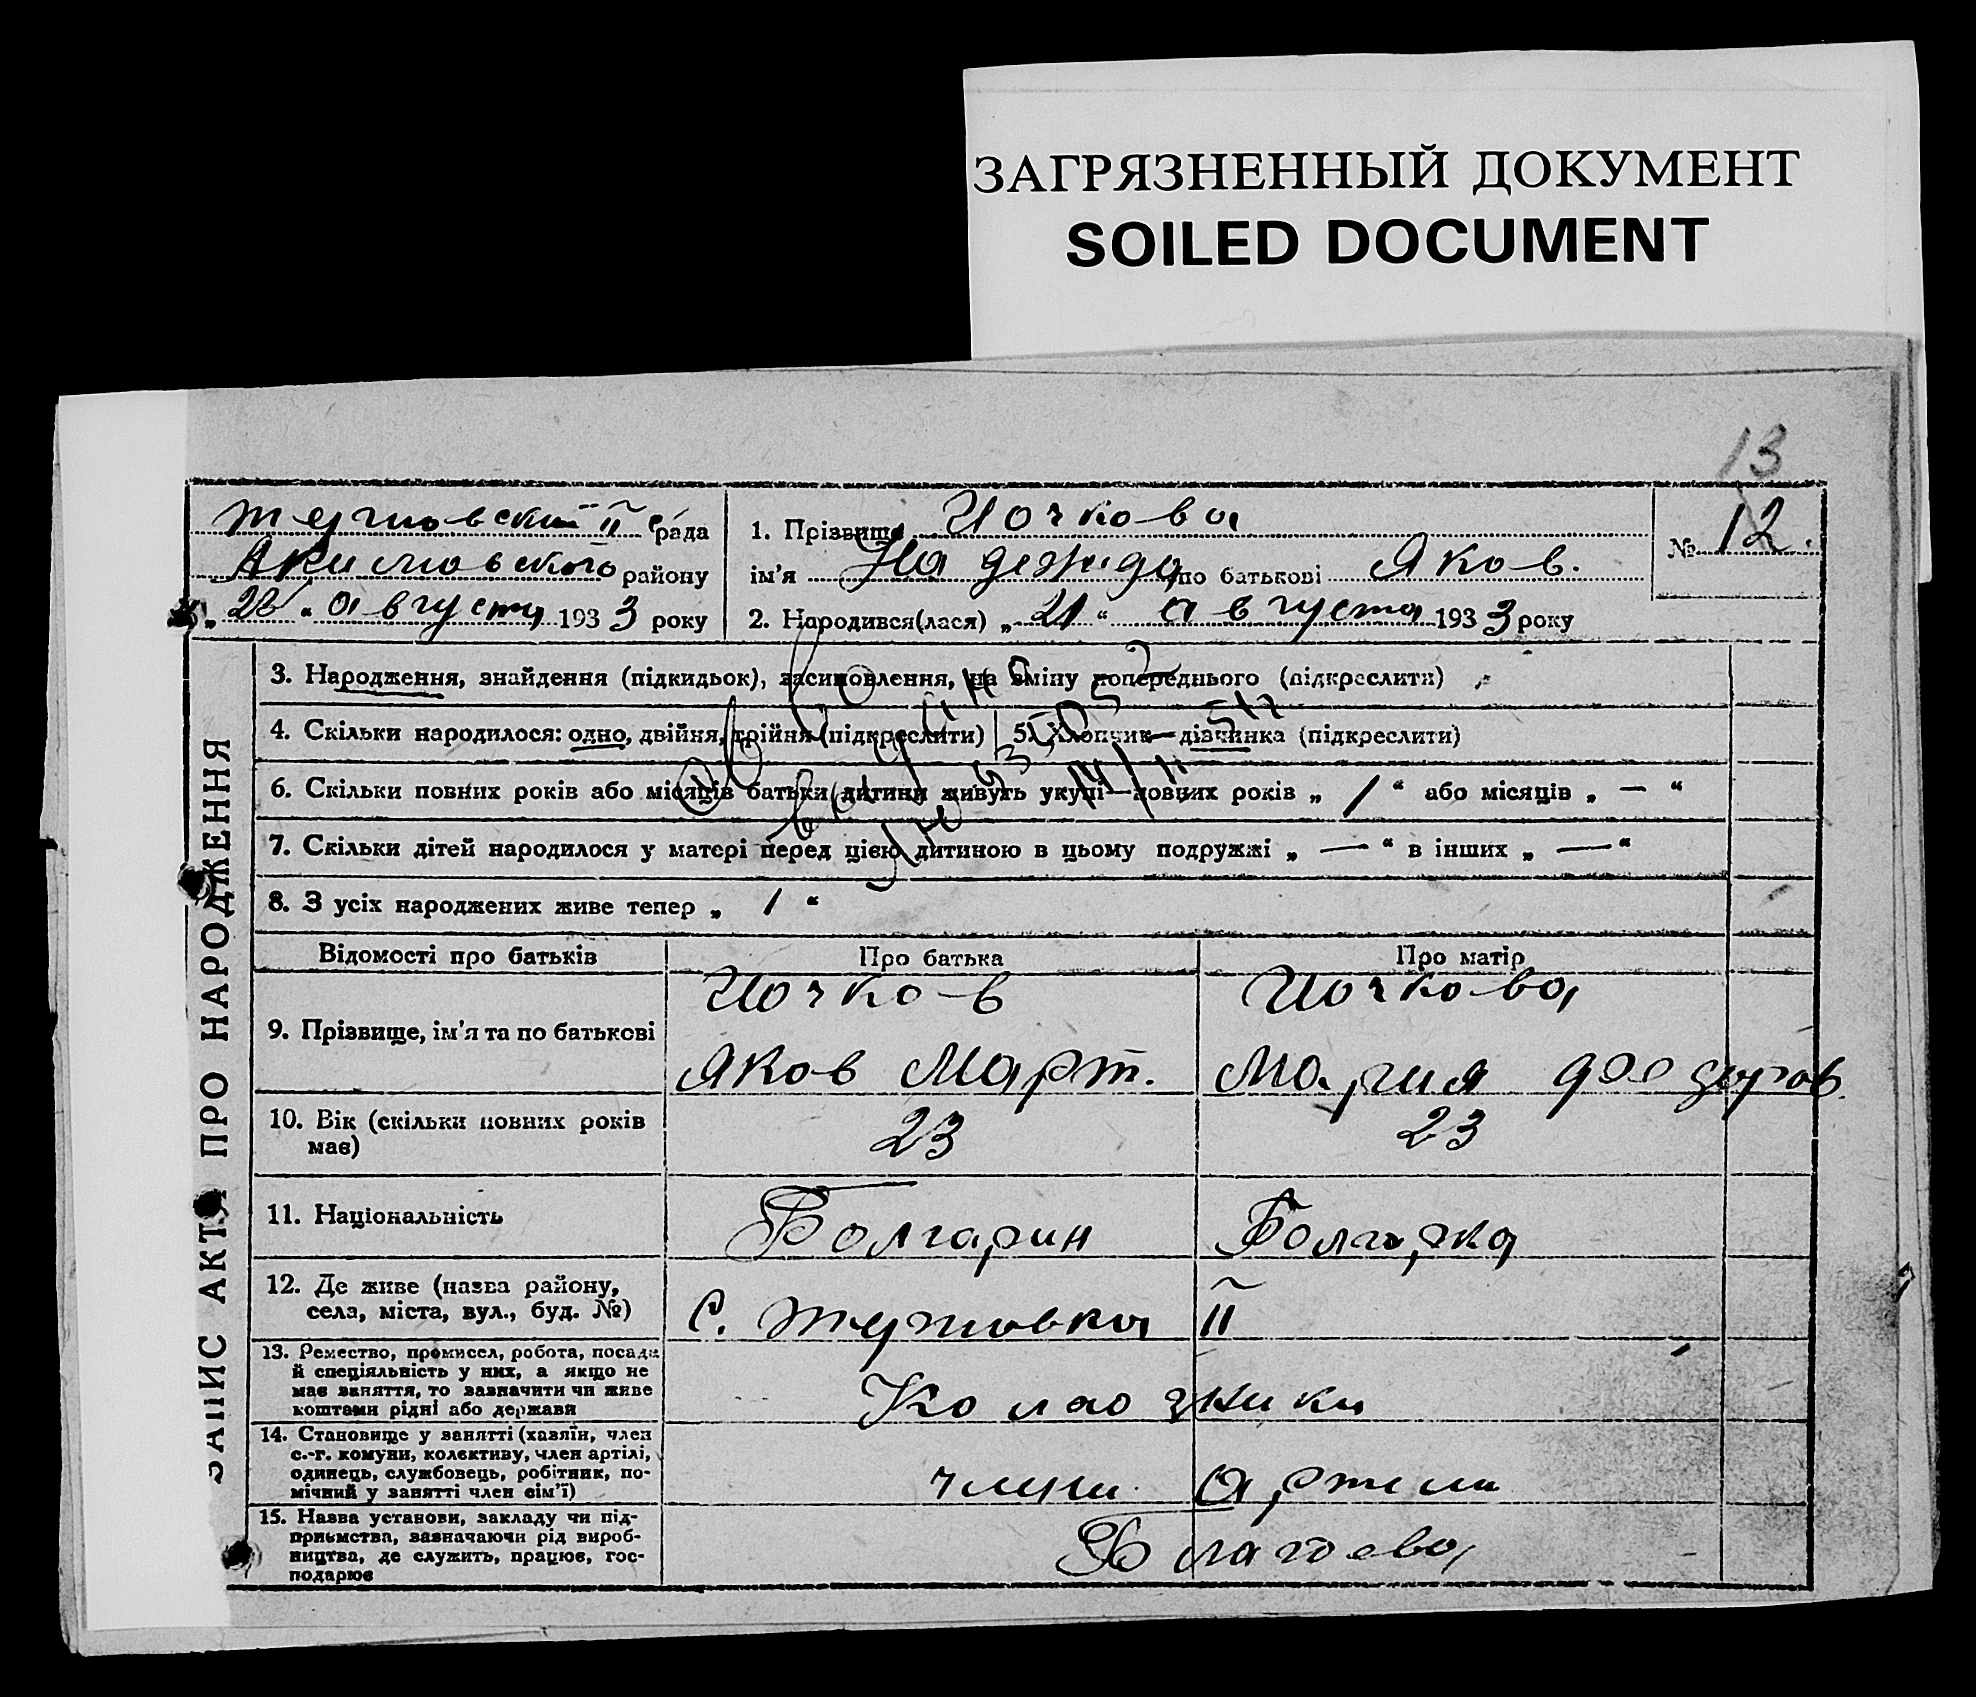 ЗАГРЯЗНЕННЫЙ ДОКУМЕНТ
SOILED DOCUMENT
13
рада
Акимовского району
„ 22 “ августа 1933 року
1. Прізвище Иочкова
ім'я Надежда по батькові Яков.
2. Народився(лася) „ 21 “ августа 1933 року
№ 12.
ЗАПИС АКТУ ПРО НАРОДЖЕННЯ
3. Народження, знайдення (підкидьок), засиновлення, на зміну попереднього (підкреслити)
4. Скільки народилося: одно, двійня, трійня (підкреслити) 5. Хлопчик—дівчинка (підкреслити)
6. Скільки повних років або місяців батьки дитини живуть укупі—повних років „ 1 “ або місяців „ — “
7. Скільки дітей народилося у матері перед цією дитиною в цьому подружжі „ — “ в інших „ — “
8. З усіх народжених живе тепер „ 1 “
Відомості про батьків Про батька Про матір
9. Прізвище, ім'я та по батькові
Иочков
Яков Март.
Иочкова
Мария
10. Вік (скільки повних років
має)
23
23
11. Національність
Болгарин
Болгарка
12. Де живе (назва району,
села, міста, вул., буд. №)
с. II
13. Ремество, промисел, робота, посада
й спеціяльність у них, а якщо не
має заняття, то зазначити чи живе
коштами рідні або держави
Колхозники
14. Становище у занятті (хазяїн, член
с.-г. комуни, колективу, член артілі,
одинець, службовець, робітник, по-
мічний у занятті член сім'ї)
члены артели
15. Назва установи, закладу чи під-
приємства, зазначаючи рід вироб-
ництва, де служить, працює, гос-
подарює
Благоева